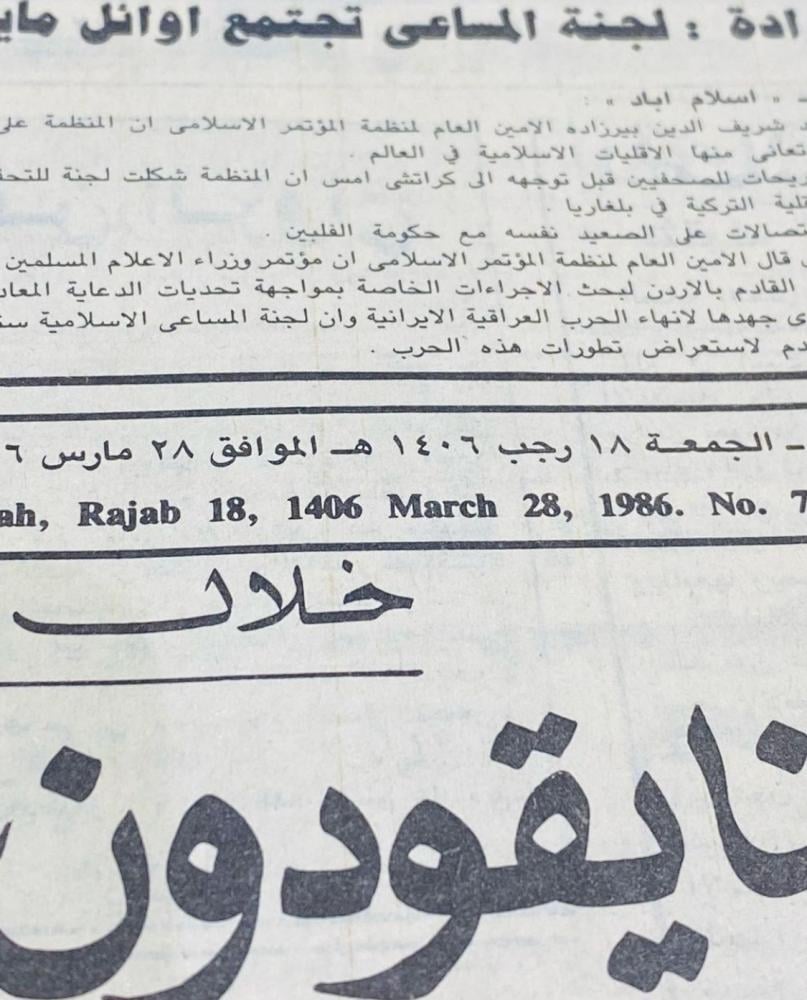 ادة : لجنة المساعى تجتمع اوائل
« اسلام اباد » :
شريف الدين بيرزاده الامين العام لمنظمة المؤتمر الاسلامى ان المنظمة على
تعانى منها الاقليات الاسلامية في العالم .
للصحفيين قبل توجهه الى كراتشى امس ان المنظمة شكلت لجنة
التركية في بلغاريا .
على الصعيد نفسه مع حكومة الفلبين .
قال الامين العام لمنظمة المؤتمر الاسلامى ان مؤتمر وزراء الاعلام المسلمين
القادم بالاردن لبحث الاجراءات الخاصة بمواجهة تحديات الدعاية
جهدها لانهاء الحرب العراقية الايرانية وان لجنة المساعى الاسلامية
لاستعراض تطورات هذه الحرب .
ـ الجمعـة ١٨ رجب ١٤٠٦ هـ الموافق ٢٨ مارس ٦
ah, Rajab 18, 1406 March 28, 1986. No. 7
خلال
نايقودون